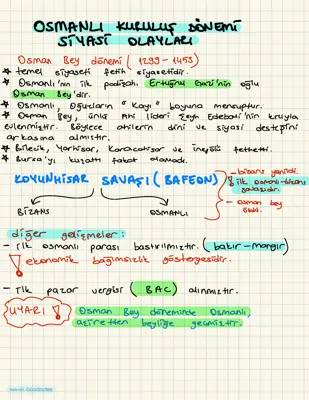 OSMANLI KURULUŞ DÖNEMİ
SİYASİ OLAYLARI
Osman Bey dönemi (1299 - 1453)
★ temel siyaseti fetih siyasetidir.
★ Osmanlı'nın ilk padişahı Ertuğrul Gazi'nin oğlu
Osman Bey'dir.
★ Osmanlı, Oğuzların "Kayı" boyuna mensuptur.
★ Osman Bey, ünlü Ahi lideri Şeyh Edebali'nin kızıyla
evlenmiştir. Böylece ahilerin dini ve siyasi desteğini
arkasına almıştır.
★ Bilecik, Yarhisar, Karacahisar ve İnegölü fethetti.
★ Bursa'yı kuşattı fakat alamadı.
KOYUNHİSAR SAVAŞI (BAFEON)
- bizans yenildi.
! ilk osmanlı-bizans
savaşıdır.
- osman bey
BİZANS OSMANLI
diğer gelişmeler:
- ilk osmanlı parası bastırılmıştır. (bakır-mangır)
! ekonomik bağımsızlık göstergesidir.
- ilk pazar vergisi (BAC) alınmıştır.
UYARI ! Osman Bey döneminde Osmanlı,
aşiretten beyliğe geçmiştir.